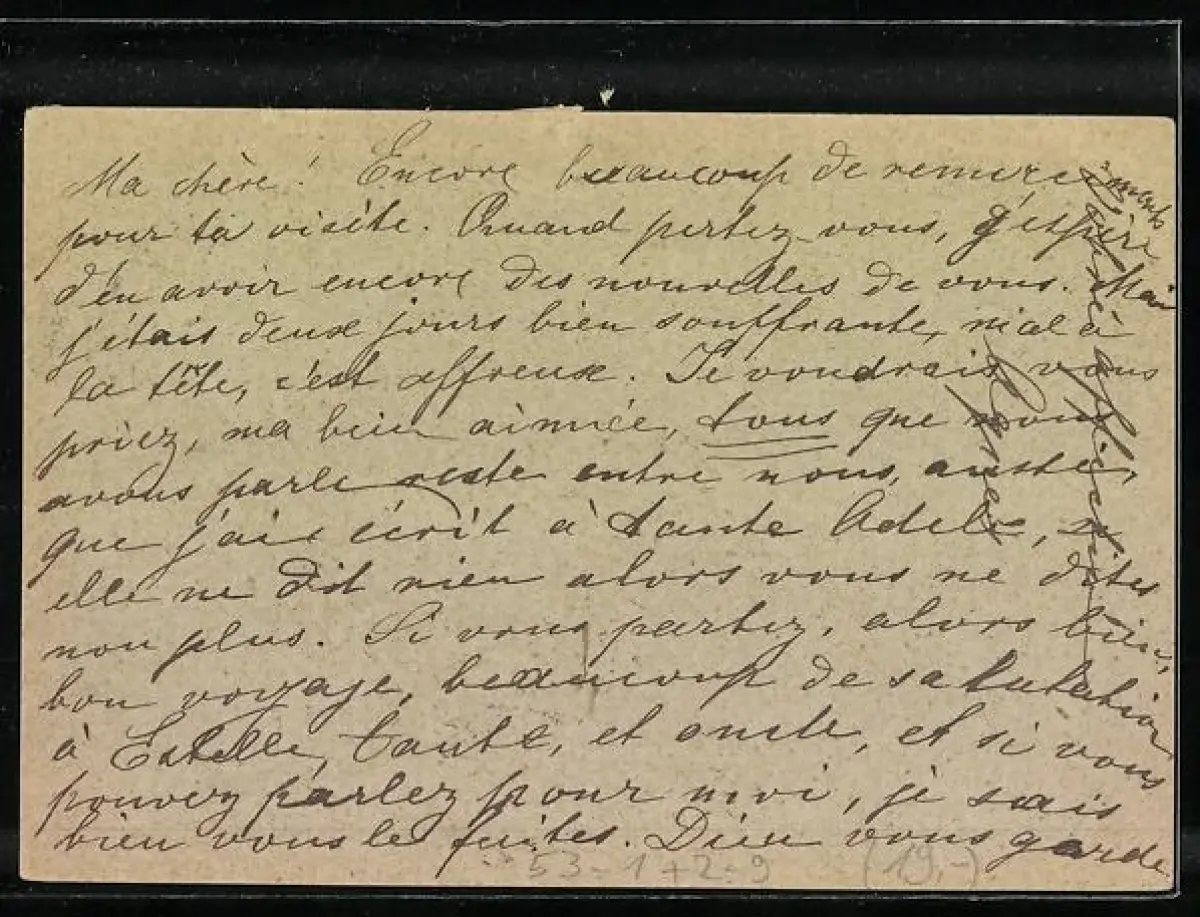 Ma chère! Encore beaucoup de remerciments
pour ta visite. Quand pertez-vous, j'espère
d'en avoir encore des nouvelles de vous. Moi
j'étais deux jours bien souffrante, mal à
la tête, c'est affreuse. Je voudrais vous
priez, ma bien aimée, tous que nous
avous parle reste entre nous,
que j'ais écrit à tante Adele, si
elle ne dit rien alors vous ne dites
non plus. Si vous partez, alors bien,
bon voyage, beaucoup de salutation
à Estelle, tante, et oncle, et si vous
pouvez parlez pour moi, je sais
bien vous le faites. Dieu vous garde
53-1+2=9 (19,-)